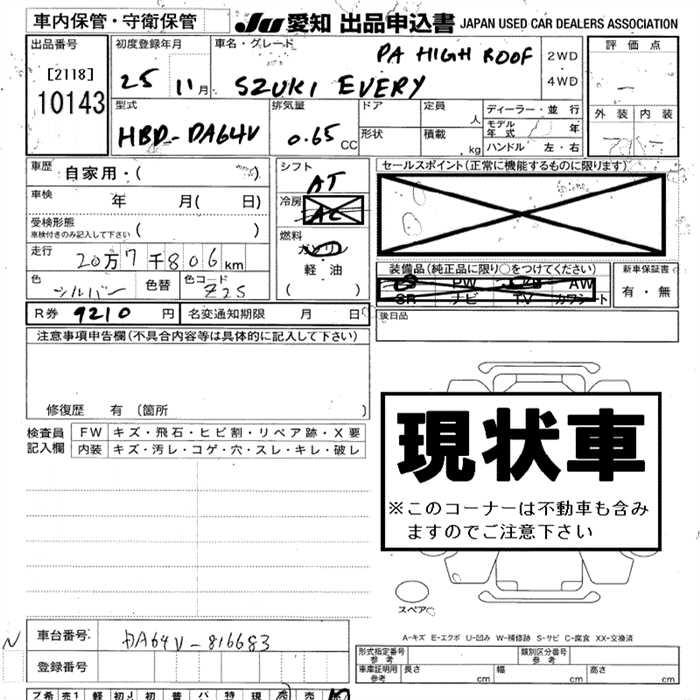 車内保管・守衛保管
JU 愛知 出品申込書 JAPAN USED CAR DEALERS ASSOCIATION
出品番号 初度登録年月 車名・グレード 評価点
[2118] PA HIGH ROOF 2WD
10143 25 11月 SZUKI EVERY 4WD
型式 排気量 ドア 定員 人 ディーラー・並行 外装 内装
モデル年式 年
HBD-DA64V 0.65 CC 形状 積載 kg ハンドル 左・右
車歴 自家用・( ) シフト AT セールスポイント(正常に機能するものに限ります)
車検 年 月( 日) 冷房 AC
受検形態 ( )
車検付きのみ記入して下さい
燃料 ガソリン
走行 20万7千806km 軽・油 装備品(純正品に限り○をつけてください) 新車保証書
色 シルバー 色替 色コード Z2S ( ) PW AW 有・無
SR ナビ TV カワシート
R券 9210円 名変通知期限 月 日 後日品
注意事項申告欄(不具合内容等は具体的に記入して下さい)
修復歴 有 〔箇所 〕
検査員記入欄 FW キズ・飛石・ヒビ割・リペア跡・X要
内装 キズ・汚レ・コゲ・穴・スレ・キレ・破レ
現状車
※このコーナーは不動車も含み
ますのでご注意下さい
スペア
A-キズ E-エクボ U-凹み W-補修跡 S-サビ C-腐食 XX-交換済
N 車台番号 DA64V-816683
形式指定番号 参考 類別区分番号 参考
登録番号 車庫証明用 参考 長さ cm 幅 cm 高さ cm